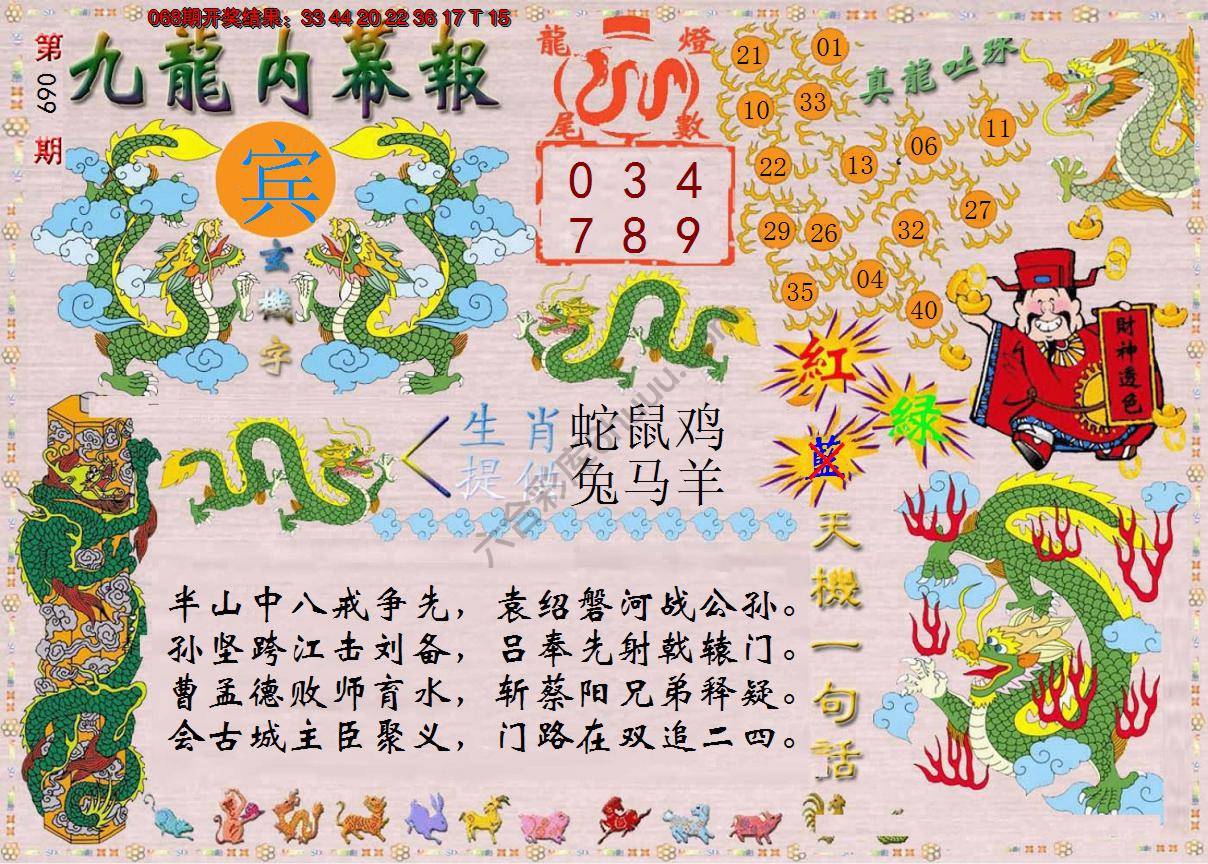 068期开奖结果：33 44 20 22 36 17 T 15
第
069
期
九龍内幕報
宾
玄
機
字
龍 燈
尾 數
0 3 4
7 8 9
真龍吐珠
21 01
10 33
22 13 06 11
29 26 32 27
35 04 40
財神透色
紅
綠
藍
生肖
提供
蛇鼠鸡
兔马羊
天機一句話
半山中八戒争先，袁绍磐河战公孙。
孙坚跨江击刘备，吕奉先射戟辕门。
曹孟德败师育水，斩蔡阳兄弟释疑。
会古城主臣聚义，门路在双追二四。